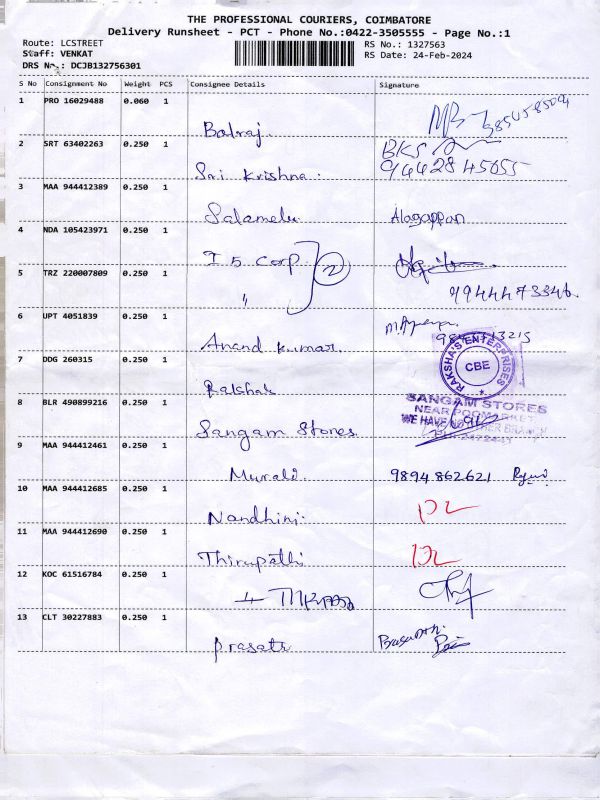 THE PROFESSIONAL COURIERS, COIMBATORE
Delivery Runsheet - PCT - Phone No.:0422-3505555 - Page No.:1
Route: LCSTREET
RS No.: 1327563
Staff: VENKAT
RS Date: 24-Feb-2024
DRS No.: DCJB132756301
S No Consignment No Weight PCS Consignee Details Signature
1 PRO 16029488 0.060 1 Balraj
2 SRT 63402263 0.250 1 Sri Krishna BKS 9442845055
3 MAA 944412389 0.250 1 Salamelu Alagappan
4 NDA 105423971 0.250 1 I 5 Corp 2
5 TRZ 220007809 0.250 1 " 9944473346
6 UPT 4051839 0.250 1 Anand Kumar
7 DDG 260315 0.250 1 Rakshak RAKSHA'S ENTERPRISES CBE
8 BLR 490899216 0.250 1 Sangam Stores SANGAM STORES
NEAR POOMARKET
WE HAVE NO OTHER BRANCH
9 MAA 944412461 0.250 1 Murali 9894862621
10 MAA 944412685 0.250 1 Nandhini
11 MAA 944412690 0.250 1 Thirupathi
12 KOC 61516784 0.250 1
13 CLT 30227883 0.250 1 Prasath